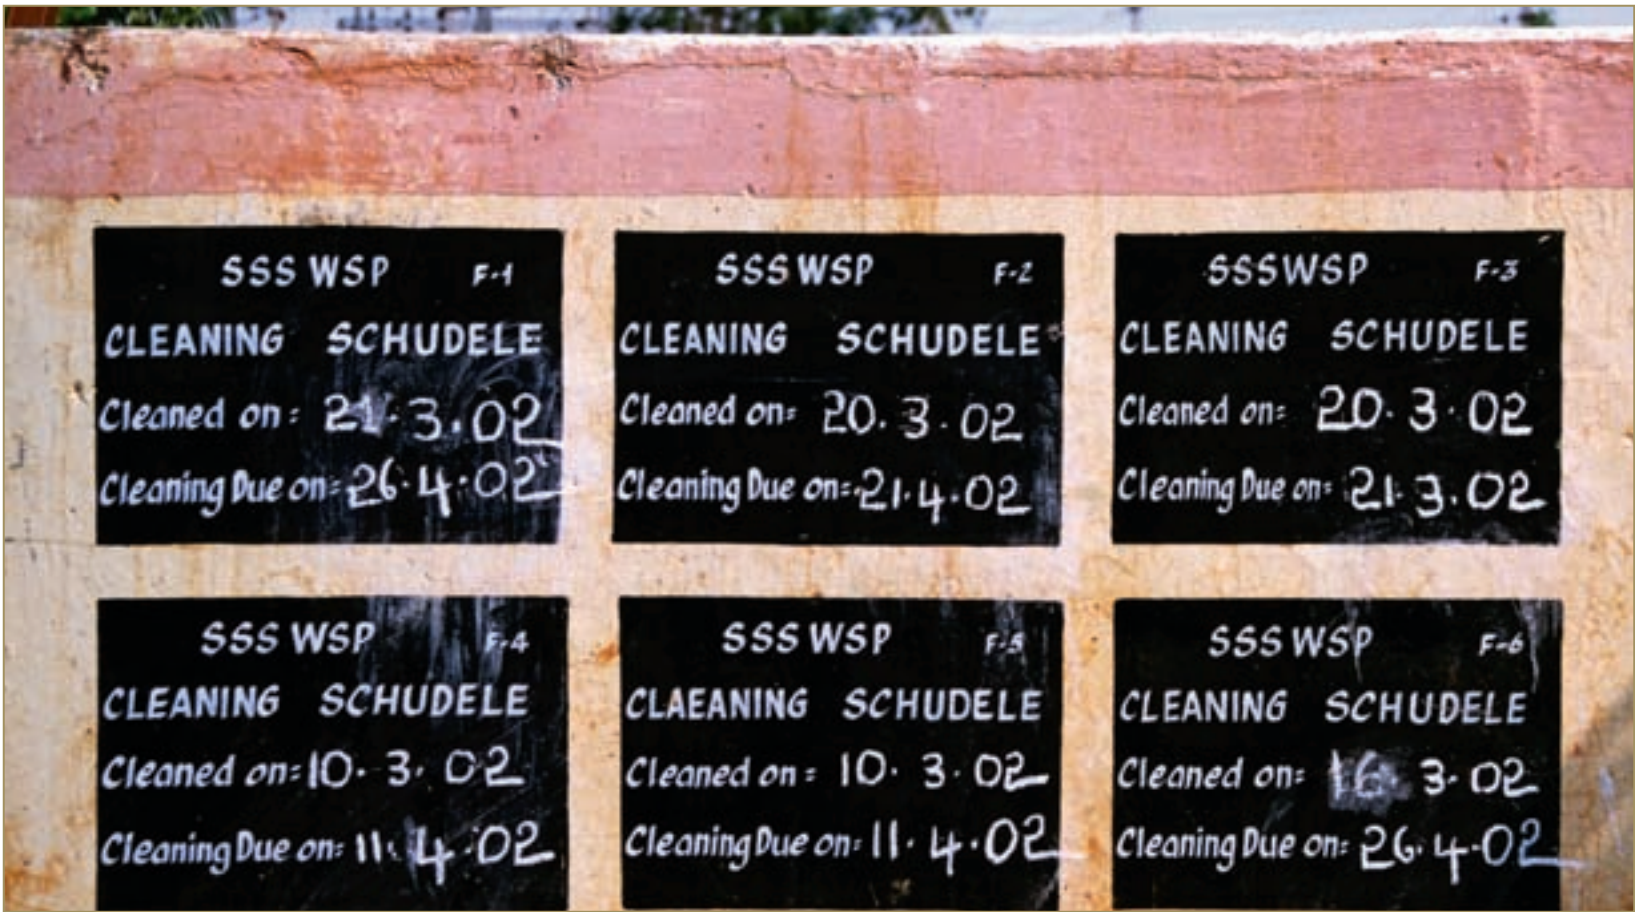 SSS WSP F-1
CLEANING SCHUDELE
Cleaned on: 21.3.02
Cleaning Due on: 26.4.02
SSS WSP F-2
CLEANING SCHUDELE
Cleaned on: 20.3.02
Cleaning Due on: 21.4.02
SSS WSP F-3
CLEANING SCHUDELE
Cleaned on: 20.3.02
Cleaning Due on: 21.3.02
SSS WSP F-4
CLEANING SCHUDELE
Cleaned on: 10.3.02
Cleaning Due on: 11.4.02
SSS WSP F-5
CLAEANING SCHUDELE
Cleaned on: 10.3.02
Cleaning Due on: 11.4.02
SSS WSP F-6
CLEANING SCHUDELE
Cleaned on: 16.3.02
Cleaning Due on: 26.4.02